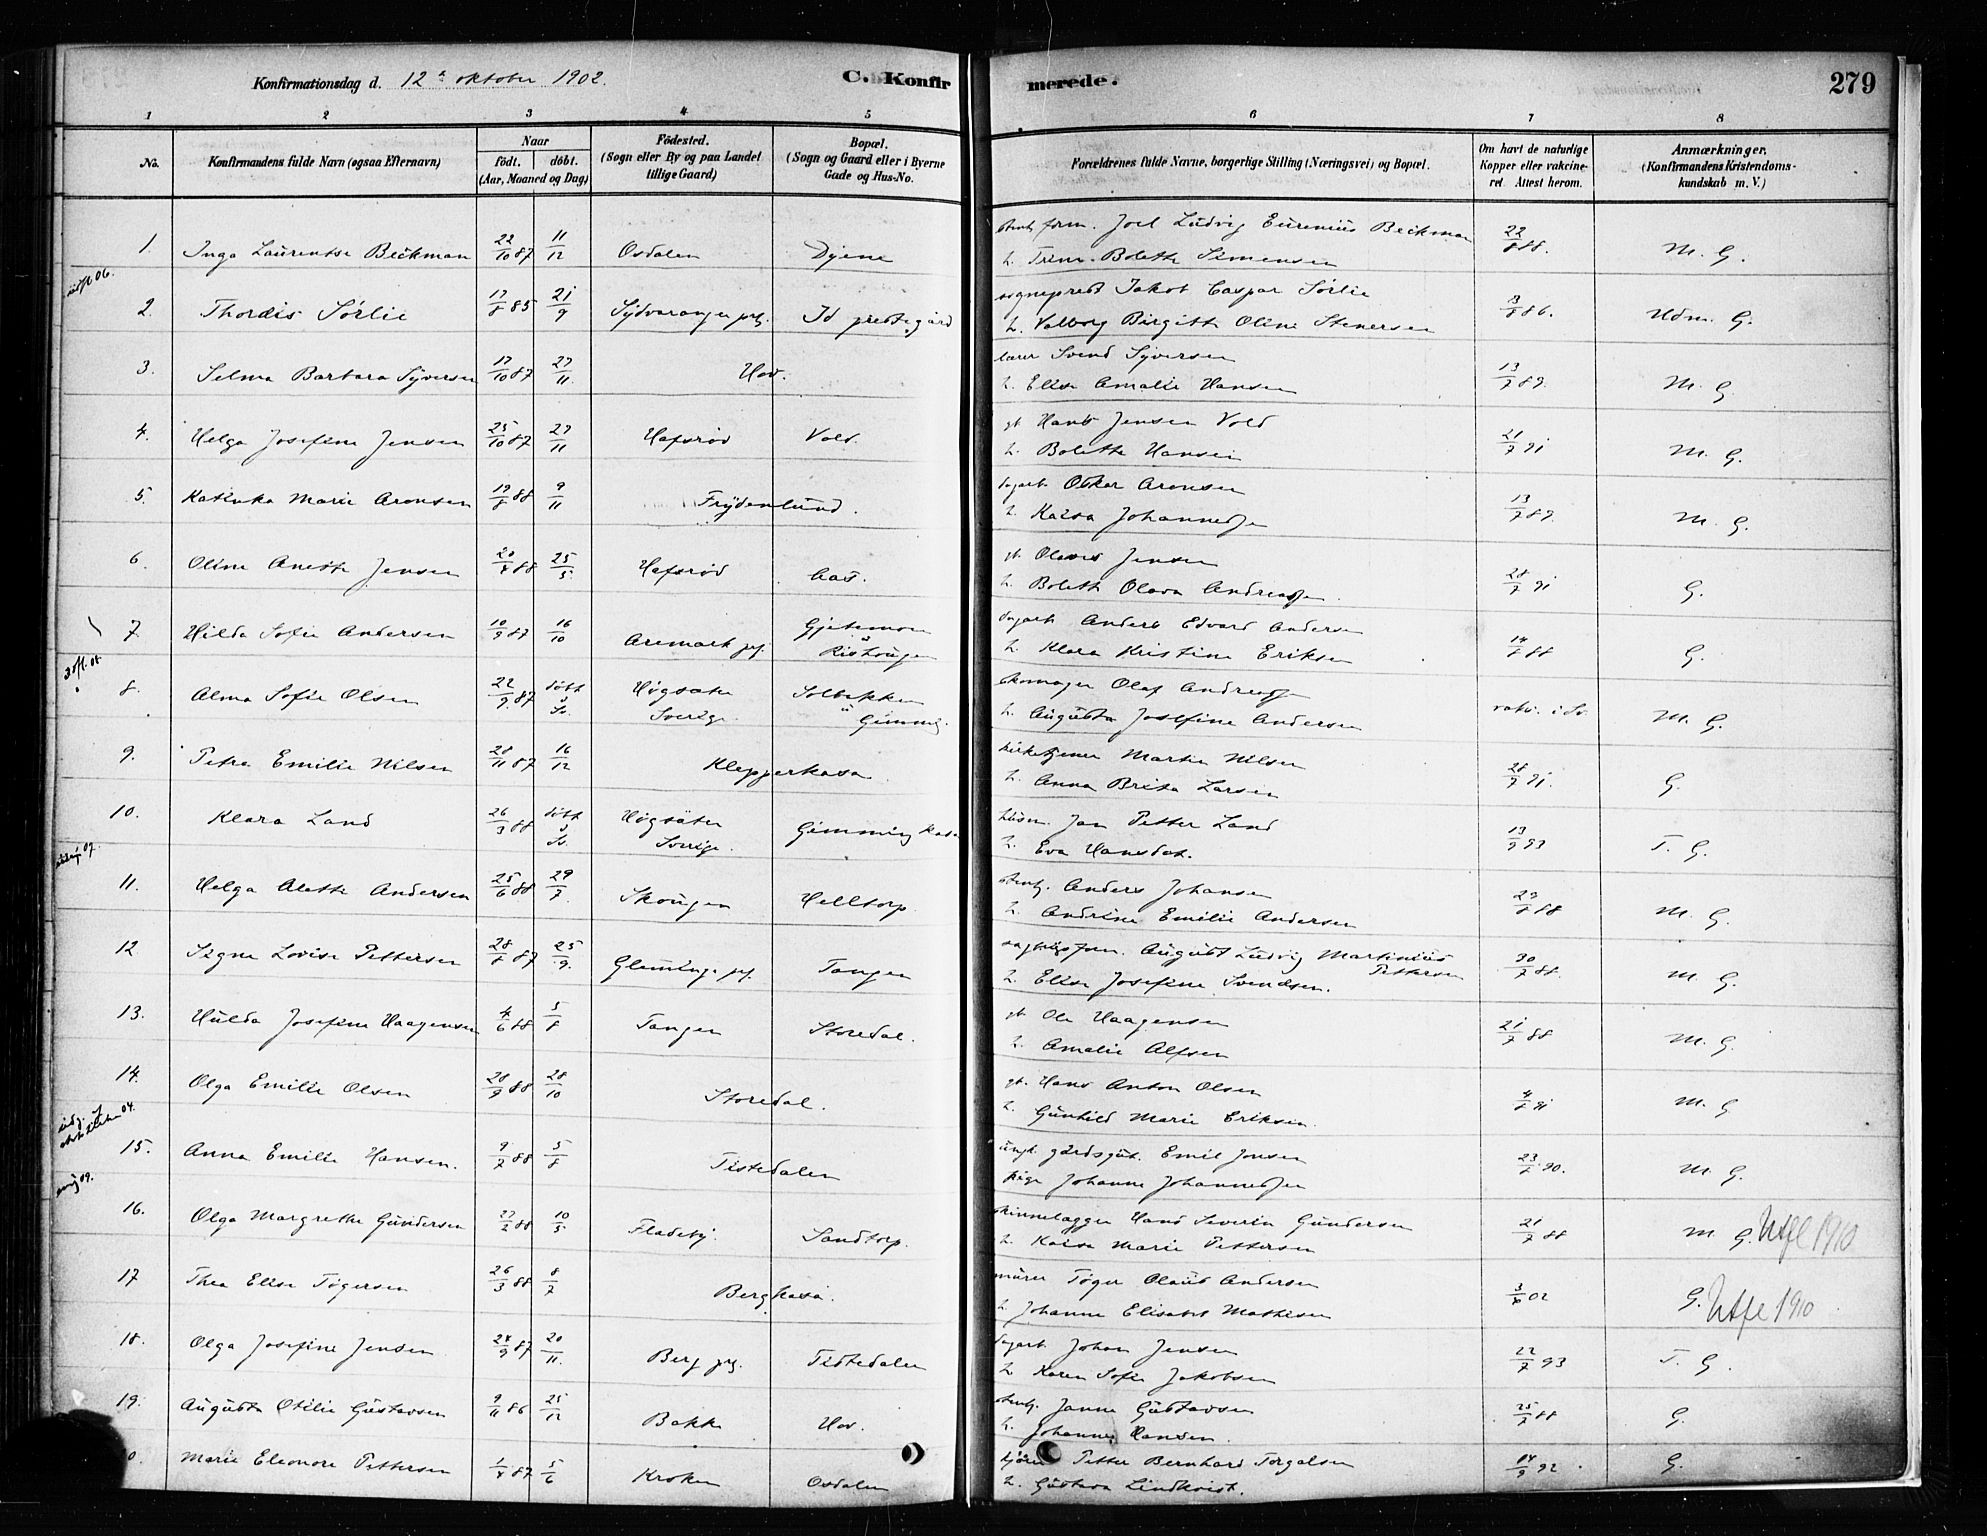 Konfirmationsdag d. 12te oktober 1902. C. Konfirmerede. 279
1 2 3 4 5 6 7 8
No. Konfirmandens fulde Navn (ogsaa Efternavn) Naar født. døbt. (Aar, Maaned og Dag) Fødested. (Sogn eller By og paa Landet tillige Gaard) Bopæl. (Sogn og Gaard eller i Byerne Gade og Hus-No.) Forældrenes fulde Navne, borgerlige Stilling (Næringsvei) og Bopæl. Om havt de naturlige Kopper eller vakcineret. Attest herom. Anmærkninger. (Konfirmandens Kristendomskundskab m. V.)
1. Inga Laurentse Beckman 22/10 87 11/12 Osdalen Dyene form. Joel Ludvig Eurenius Beckman 22/8 88. M. G.
h. Trine Bolette Simensen
2. Thordis Sørlie 17/8 85 21/9 Sydvaranger prg. Id prestegård sogneprest Jakob Caspar Sørlie 3/8 86. Udm. G.
h. Valborg Birgitte Oline Stenersen
3. Selma Barbara Syversen 17/10 87 27/11 Hov. lærer Svend Syversen 13/7 89. M. G.
h. Elise Amalie Hansen
4. Helga Josefine Jensen 25/10 87 27/11 Hafsrød Vold. gt. Hans Jensen Vold 21/7 91 M. G.
h. Bolette Hansen
5. Katinka Marie Aronsen 19/8 88 9/11 Frydenlund. dagarb. Oskar Aronsen 13/7 89. M. G.
h. Kaisa Johannessen
6. Oline Anette Jensen 20/4 88 25/5. Hafsrød Aas. gt. Olaves Jensen 28/7 91 G.
h. Bolette Olava Andreassen
7. Hilda Sofie Andersen 10/9 87 16/10 Aremark prg. Gjetemoen u Rishaugen dagarb. Anders Edvard Andersen 14/8 88 G.
h. Klara Kristine Eriksen
8. Alma Sofie Olsen 22/9 87 døbt i Sv. Høgsäter Sverige. Solbakken u Gimming. skomager Olaf Andreassen vakc. i Sv. M. G.
h. Augusta Josefine Andersen
9. Petra Emilie Nilsen 28/11 87 16/12 Klepperkasa kirketjener Martin Nilsen 28/9 91. G.
h. Anna Brita Larsen
10. Klara Land 26/3 88 døbt i Sv. Høgsäter Sverige. Gimming kasa husm. Jan Petter Land 13/9 93 T. G.
h. Eva Hansdat.
11. Helga Alette Andersen 25/6 88 29/7. Skougen Helltorp stenh. Anders Johansen 23/8 88 M. G.
h. Andrine Emilie Andersen
12 Signe Lovise Pettersen 28/8 87 25/9. Glemminge prg. Tangen form. August Ludvig Martinius Pettersen 30/7 88. M. G.
h. Elise Josefine Svendsen.
13. Hulda Josefine Haagensen 4/6 88 5/8 Tangen Storedal. gt. Ole Haagensen 21/7 88 M. G.
h. Amalie Alfsen
14. Olga Emilie Olsen 28/9 88 28/10 Storedal. gt. Hans Anton Olsen 4/8 91 M. G
h. Gunhild Marie Eriksen.
15. Anna Emilie Hansen. 9/7 88 5/8 Tistedalen ungk. gårdsgut. Emil Jonsen 23/8 90. M. G.
pige Johanne Johannessen
16. Olga Margrethe Gundersen 27/2 88 10/5 Fladeby. Sandtorp. skindlægger Hans Severin Gundersen 21/7 88 M. G. Utfl 1910
h. Kaisa Marie Pettersen
17 Thea Elise Tøgersen 26/3 88 8/7 Bergkasa. murer Tøger Olaus Andersen 3/8 02 G. Utfl 1910
h. Johanne Elisabet Mathisen
18. Olga Josefine Jensen 24/9 87 20/11. Berg prg. Tistedalen dagarb. Johan Jensen 22/7 93 T. G.
h. Karen Sofie Jakobsen
19. Augusta Otilie Gustavsen 9/11 86 25/12 Bakke Hov. stenh. Janne Gustavsen 25/7 88 G.
h. Johanne Hansen.
0. Marie Eleonore Pettersen 1/4 87 5/6 Kroken Osdalen Petter Bernhard Torgalsen 14/9 92 G.
h. Gustava Lindkvist.